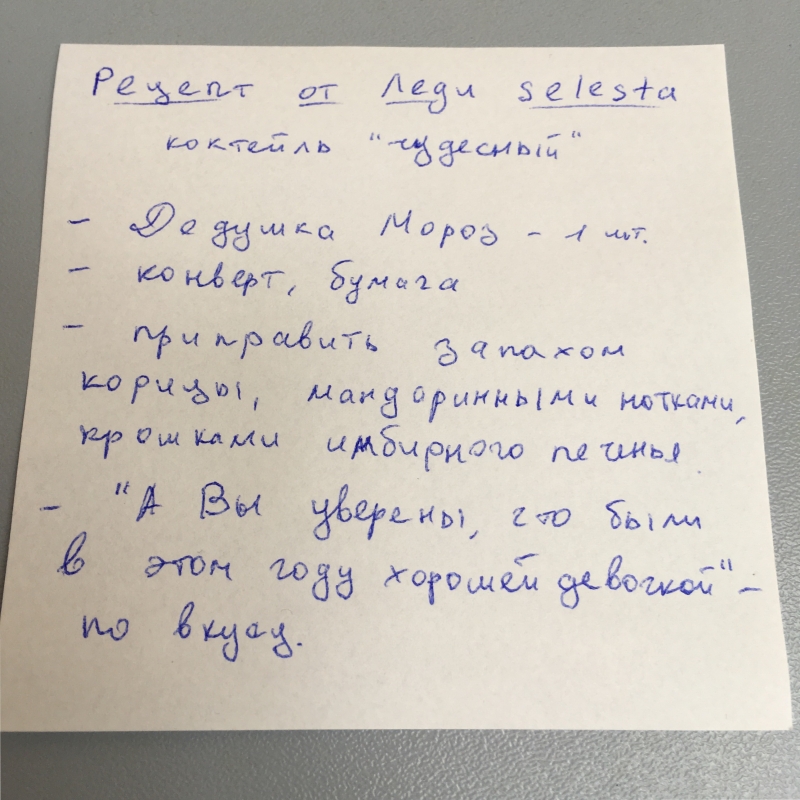 Рецепт от Леди selesta
коктейль "чудесный"
- Дедушка Мороз - 1 шт.
- конверт, бумага
- приправить запахом
корицы, мандаринными нотками,
крошками имбирного печенья.
- "А Вы уверены, что были
в этом году хорошей девочкой" -
по вкусу.